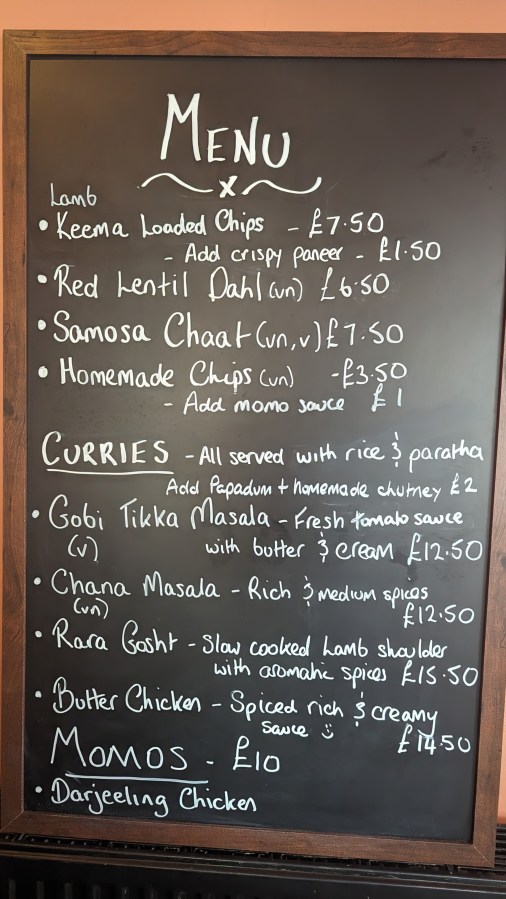 MENU
x
Lamb
• Keema Loaded Chips - £7.50
- Add crispy paneer - £1.50
• Red Lentil Dahl (vn) £6.50
• Samosa Chaat (vn, v) £7.50
• Homemade Chips (vn) - £3.50
- Add momo sauce £1
CURRIES - All served with rice & paratha
Add Papadum + homemade chutney £2
• Gobi Tikka Masala - Fresh tomato sauce
(v) with butter & cream £12.50
• Chana Masala - Rich & medium spices
(vn) £12.50
• Rara Gosht - Slow cooked Lamb shoulder
with aromatic spices £15.50
• Butter Chicken - Spiced rich & creamy
sauce ☺ £14.50
MOMOS - £10
• Darjeeling Chicken